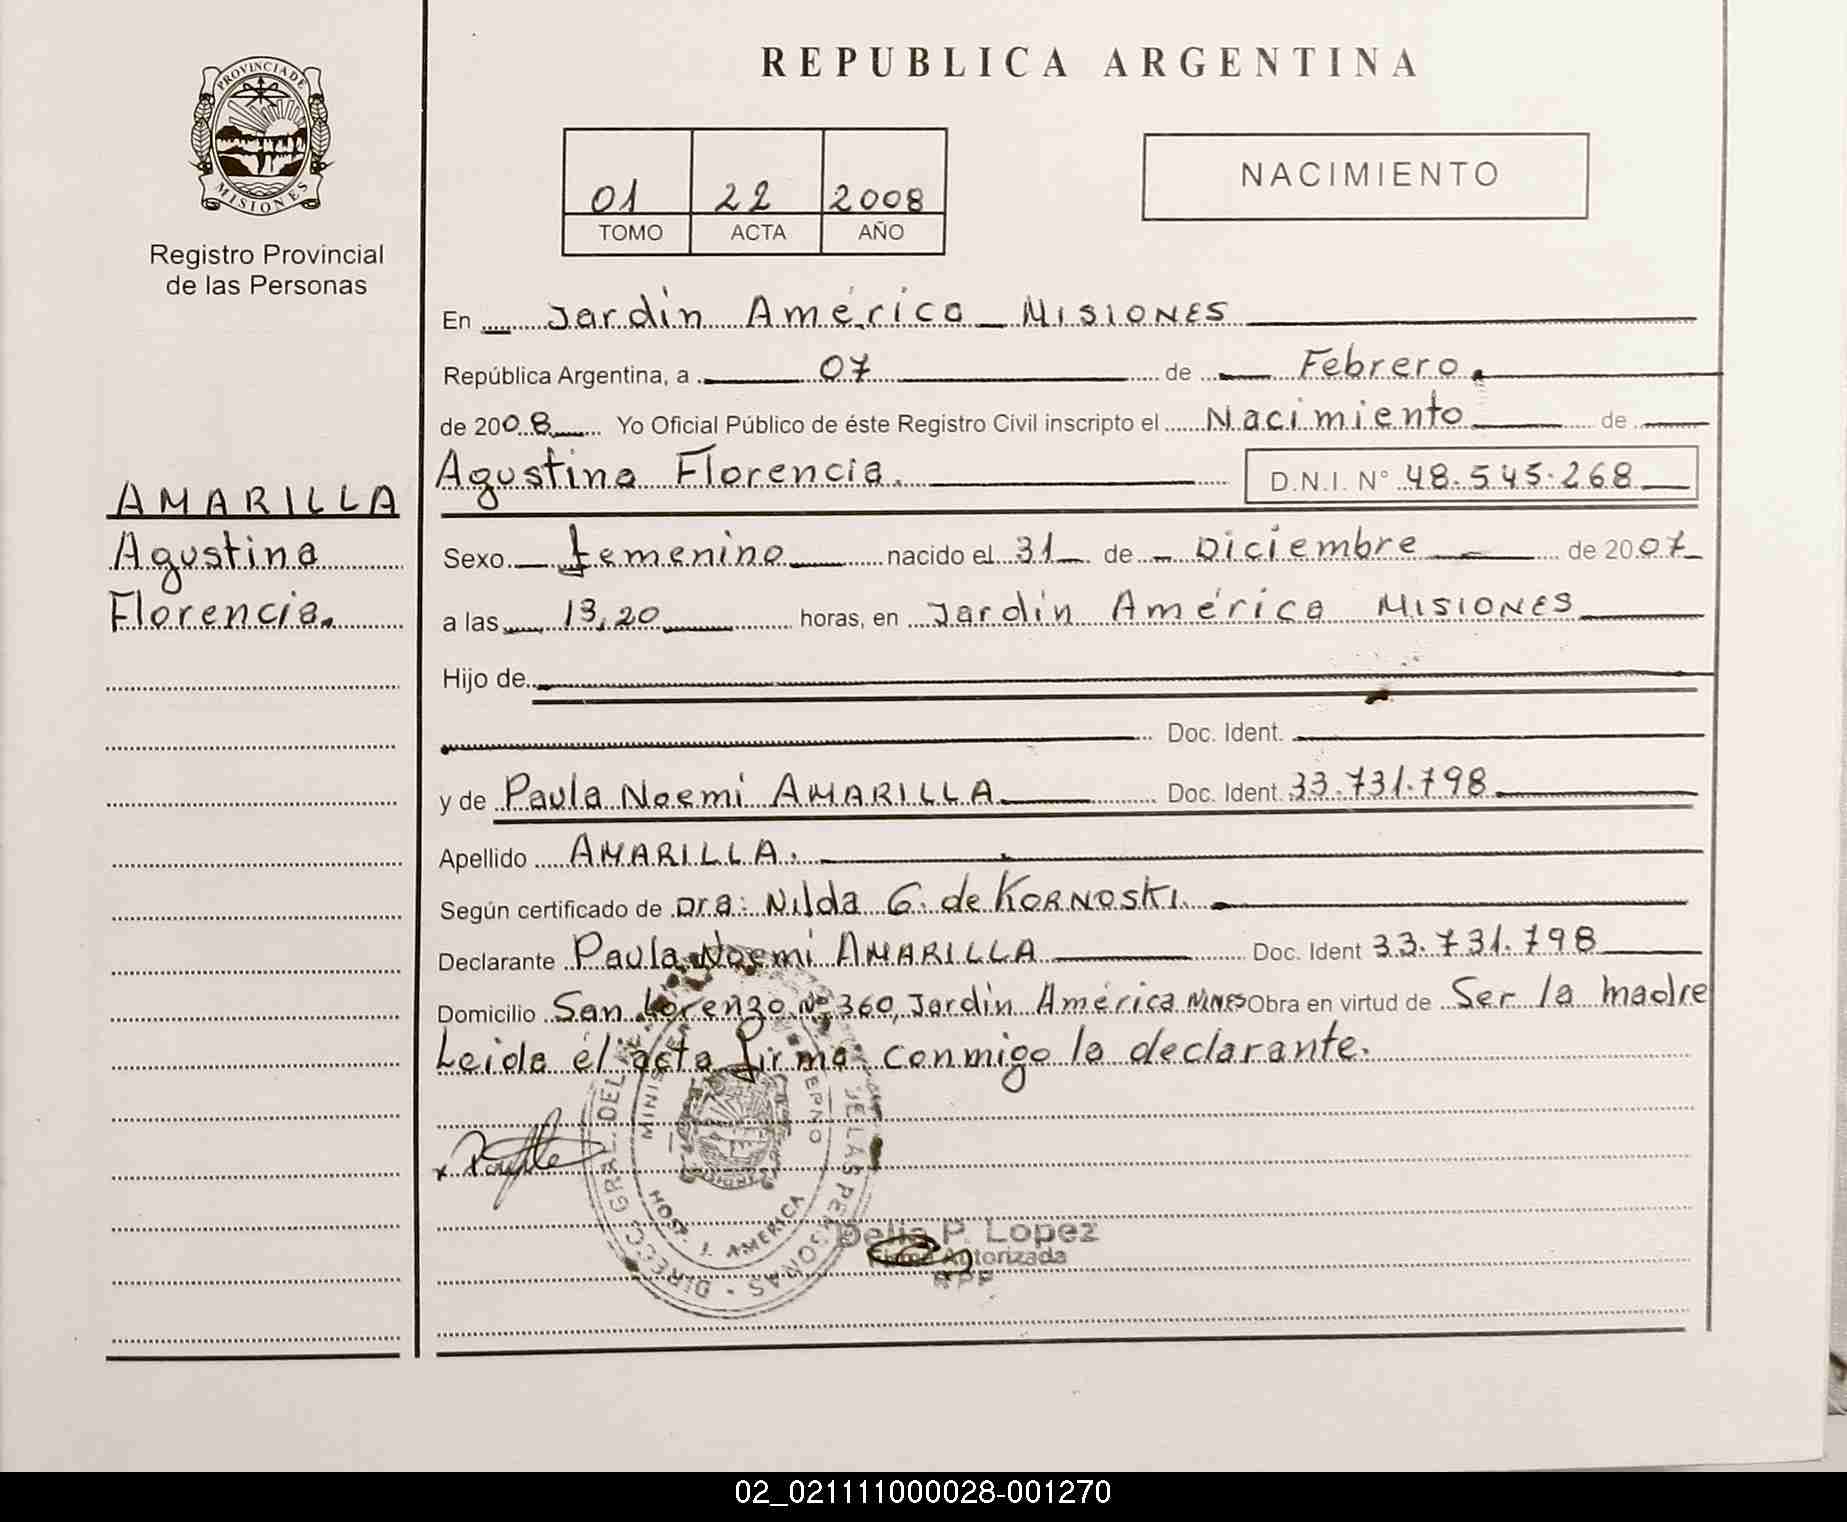 REPUBLICA ARGENTINA
PROVINCIA DE
MISIONES
Registro Provincial
de las Personas
01 22 2008
TOMO ACTA AÑO
NACIMIENTO
En Jardín América MISIONES
República Argentina, a 07 de Febrero.
de 2008 Yo Oficial Público de éste Registro Civil inscripto el Nacimiento de
Agustina Florencia. D.N.I. N° 48.545.268
AMARILLA
Agustina
Florencia.
Sexo femenino nacido el 31 de Diciembre de 2007
a las 13,20 horas, en Jardín América MISIONES
Hijo de
Doc. Ident.
y de Paula Noemi AMARILLA Doc. Ident. 33.731.798
Apellido AMARILLA.
Según certificado de Dra: Nilda G. de KORNOSKI.
Declarante Paula Noemi AMARILLA Doc. Ident 33.731.798
Domicilio San Lorenzo Nº 360, Jardín América MNES Obra en virtud de Ser la madre
Leida el acta firma conmigo la declarante.
HOSP. J. AMERICA
Delia P. Lopez
Firma Autorizada
RPP
02_021111000028-001270